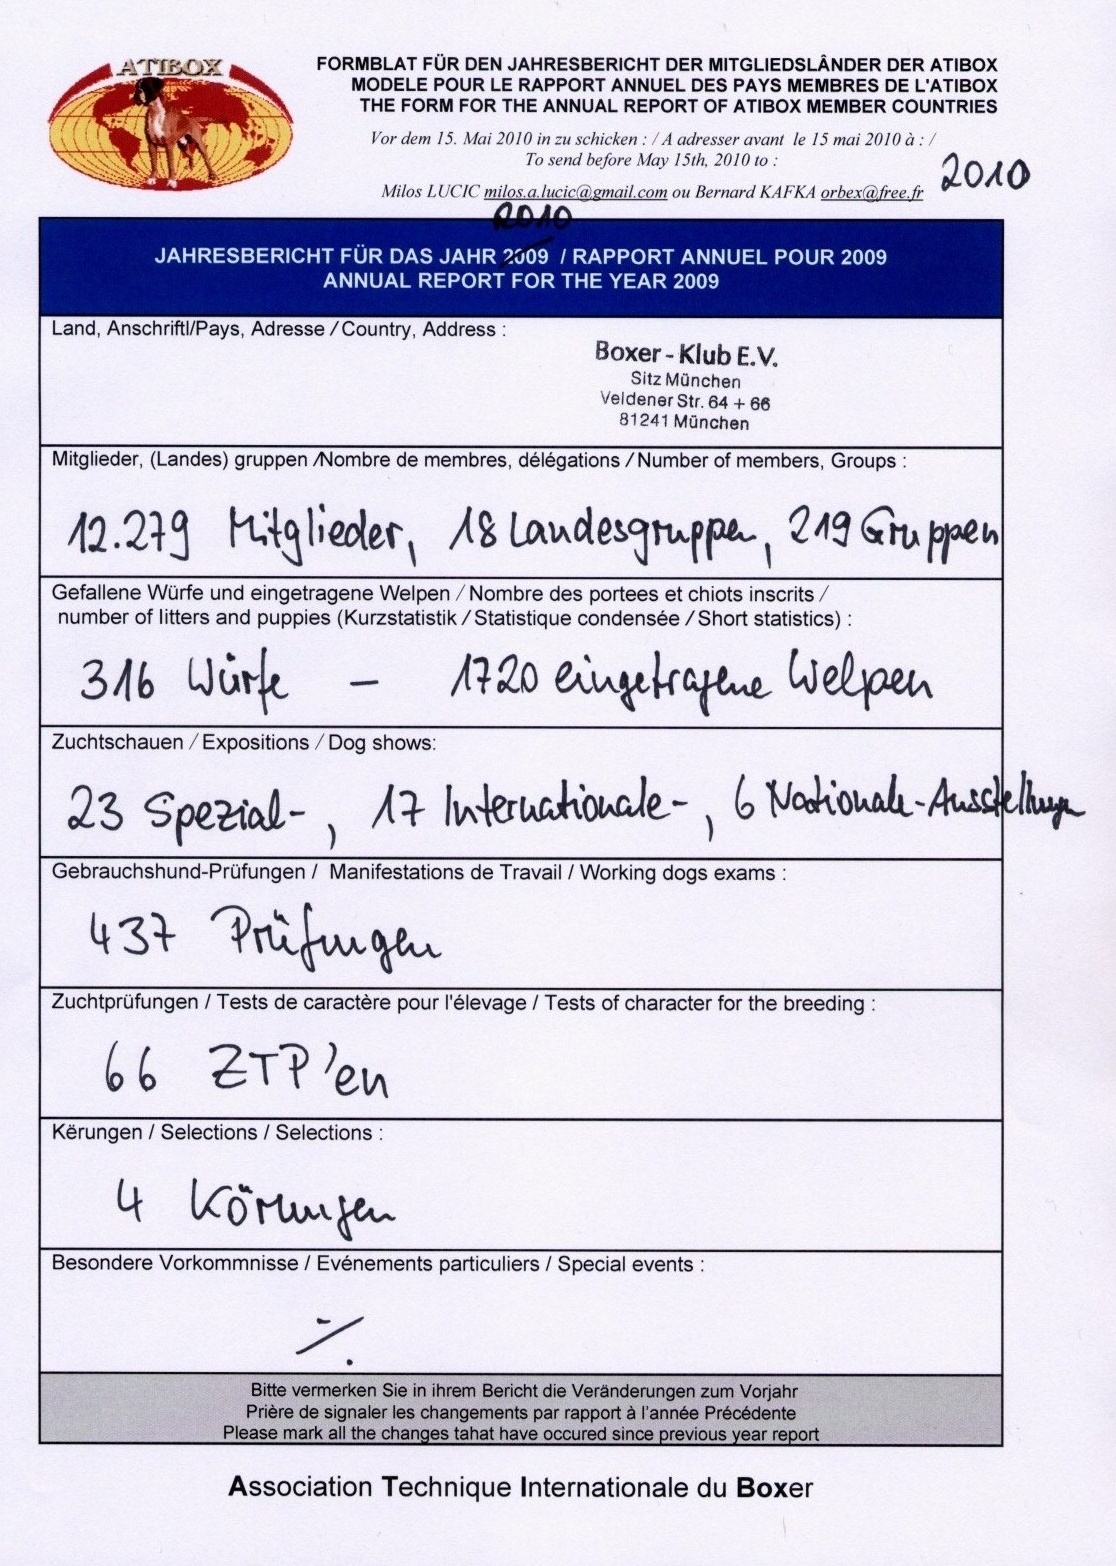 ATIBOX
FORMBLAT FÜR DEN JAHRESBERICHT DER MITGLIEDSLÂNDER DER ATIBOX
MODELE POUR LE RAPPORT ANNUEL DES PAYS MEMBRES DE L'ATIBOX
THE FORM FOR THE ANNUAL REPORT OF ATIBOX MEMBER COUNTRIES
Vor dem 15. Mai 2010 in zu schicken : / A adresser avant le 15 mai 2010 à : /
To send before May 15th, 2010 to :
2010
Milos LUCIC milos.a.lucic@gmail.com ou Bernard KAFKA orbex@free.fr
2010
JAHRESBERICHT FÜR DAS JAHR 2009 / RAPPORT ANNUEL POUR 2009
ANNUAL REPORT FOR THE YEAR 2009
Land, Anschriftl/Pays, Adresse / Country, Address :
Boxer - Klub E.V.
Sitz München
Veldener Str. 64 + 66
81241 München
Mitglieder, (Landes) gruppen /Nombre de membres, délégations / Number of members, Groups :
12.279 Mitglieder, 18 Landesgruppen, 219 Gruppen
Gefallene Würfe und eingetragene Welpen / Nombre des portees et chiots inscrits /
number of litters and puppies (Kurzstatistik / Statistique condensée / Short statistics) :
316 Würfe – 1720 eingetragene Welpen
Zuchtschauen / Expositions / Dog shows:
23 Spezial-, 17 Internationale-, 6 Nationale-Ausstellungen
Gebrauchshund-Prüfungen / Manifestations de Travail / Working dogs exams :
437 Prüfungen
Zuchtprüfungen / Tests de caractère pour l'élevage / Tests of character for the breeding :
66 ZTP'en
Kërungen / Selections / Selections :
4 Körungen
Besondere Vorkommnisse / Evénements particuliers / Special events :
-/.
Bitte vermerken Sie in ihrem Bericht die Veränderungen zum Vorjahr
Prière de signaler les changements par rapport à l'année Précédente
Please mark all the changes tahat have occured since previous year report
Association Technique Internationale du Boxer